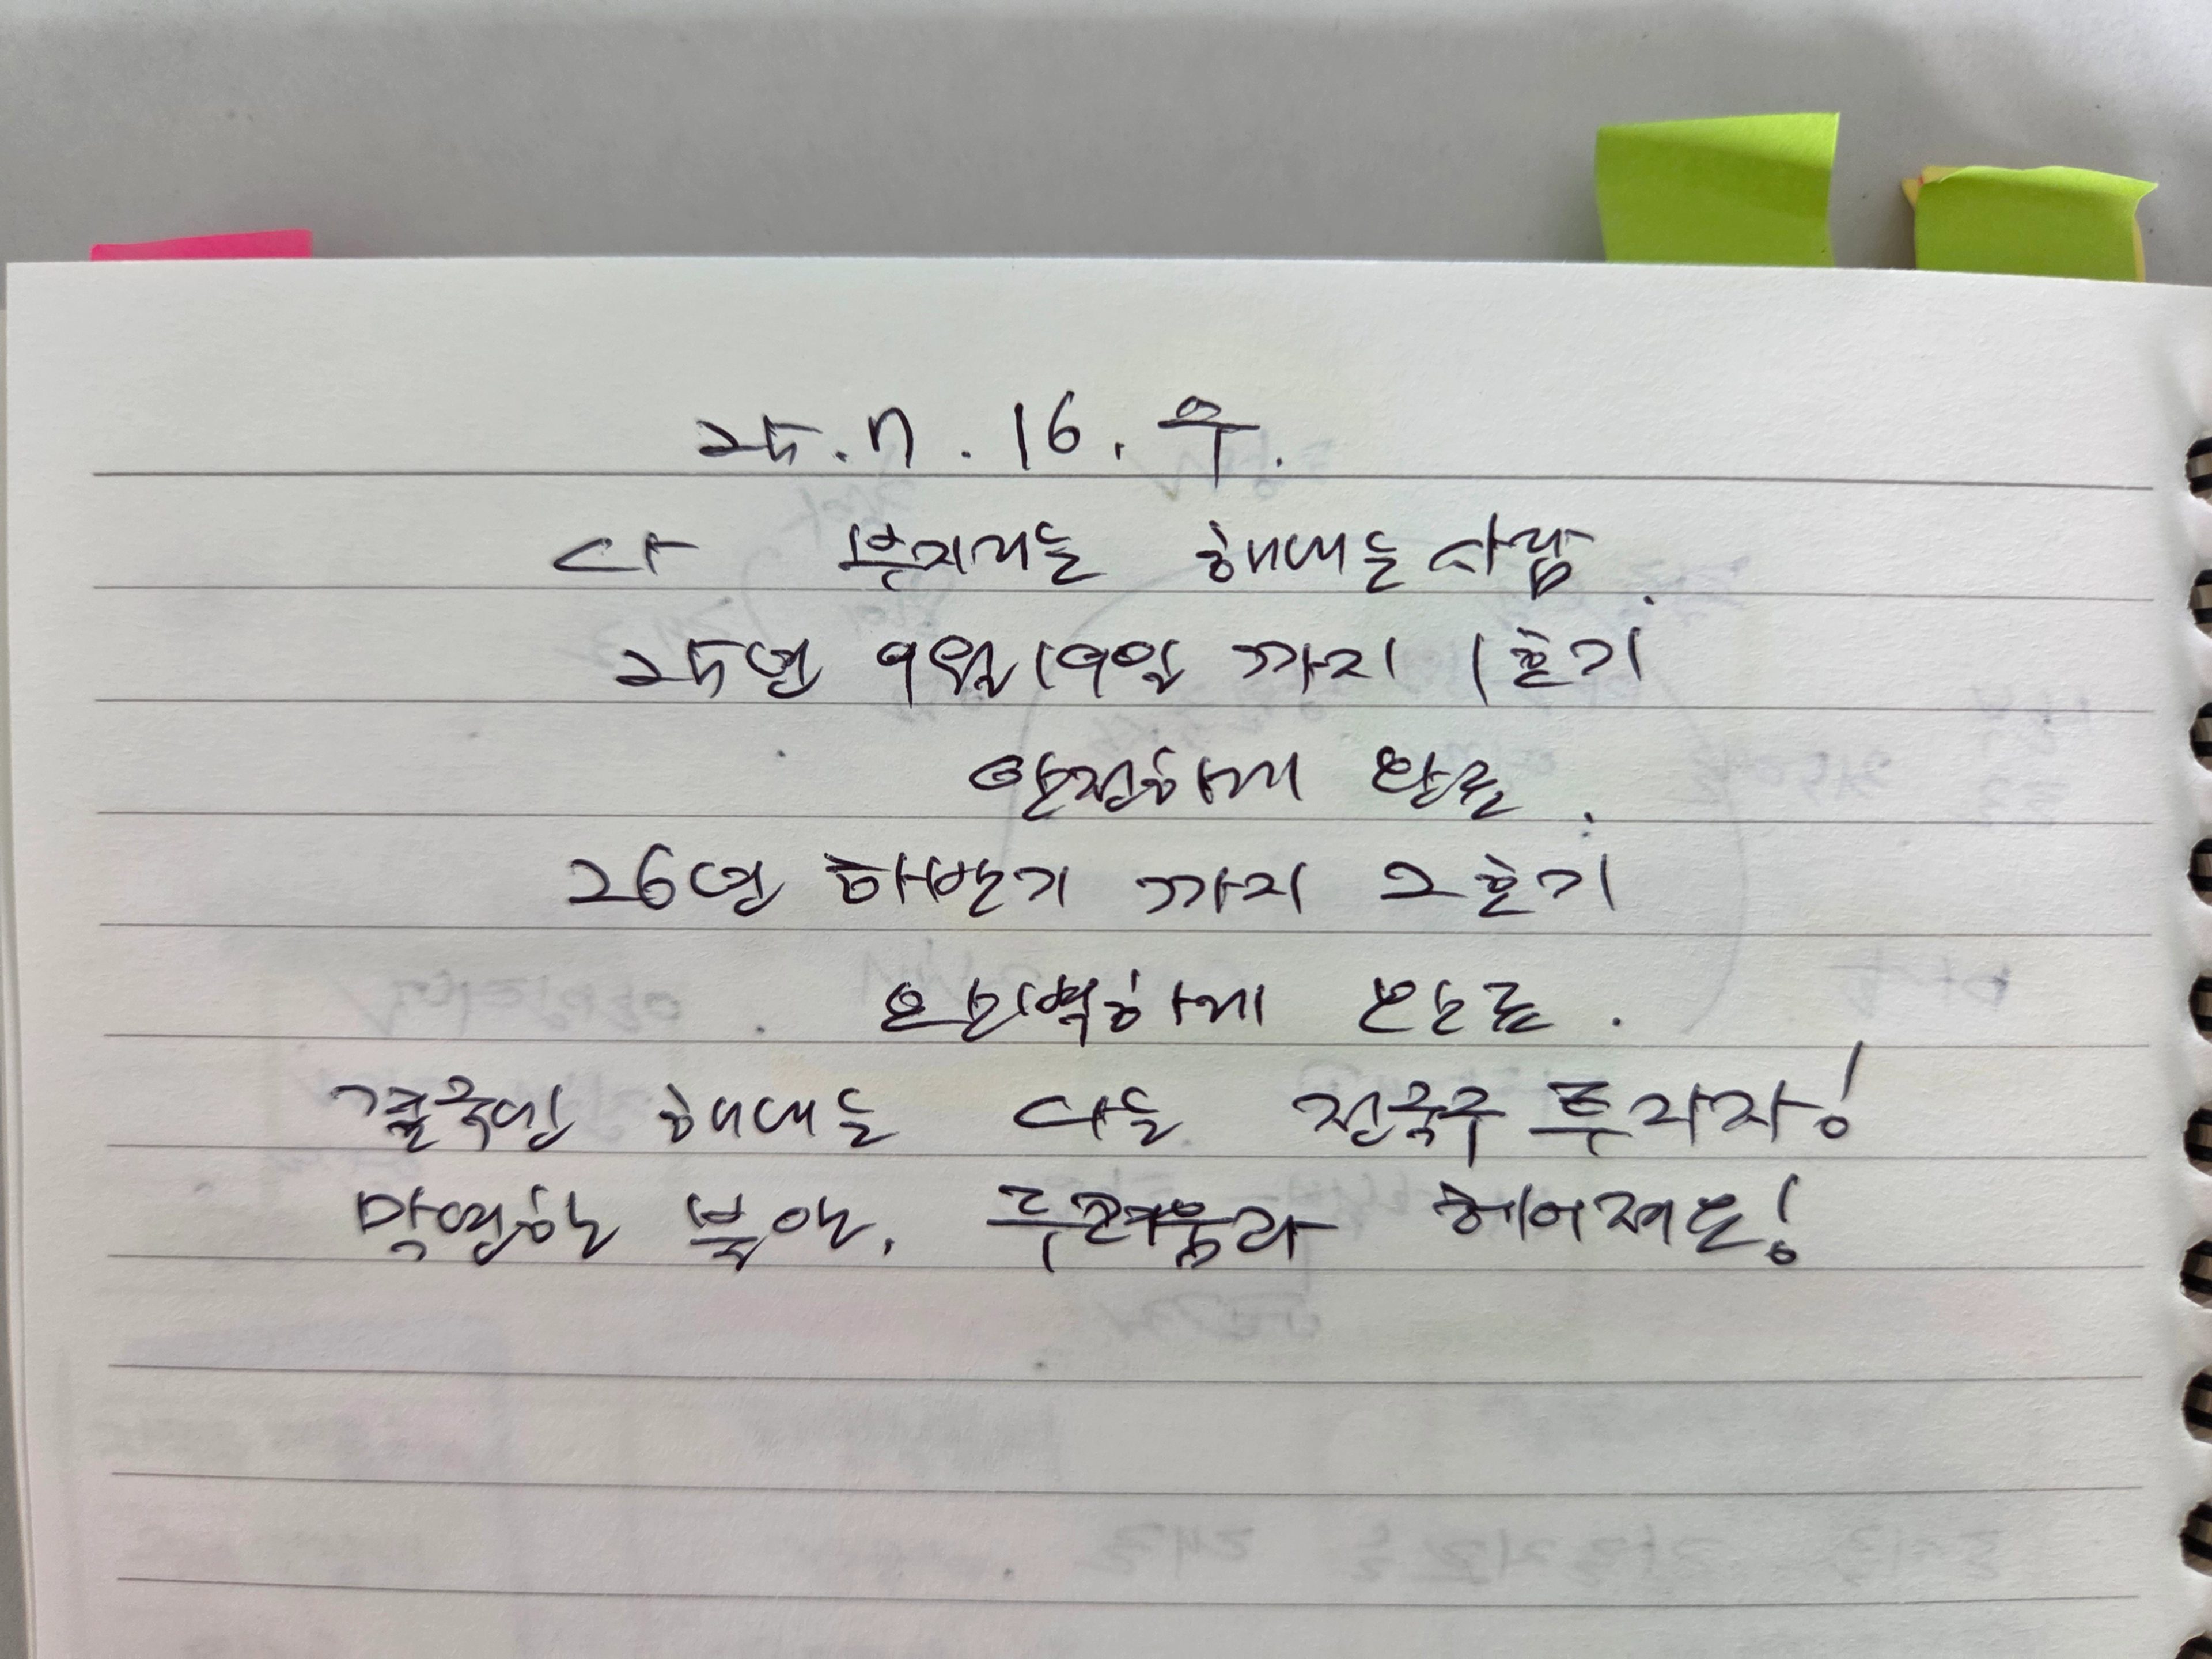 25. 7. 16. 수.
나 부지기는 해내는 사람.
25년 9월 19일 까지 1호기
안전하게 완료.
26년 하반기 까지 2호기
완벽하게 완료.
결국엔 해내는 나는 전국구 투자자!
막연한 불안, 두려움과 헤어져요!